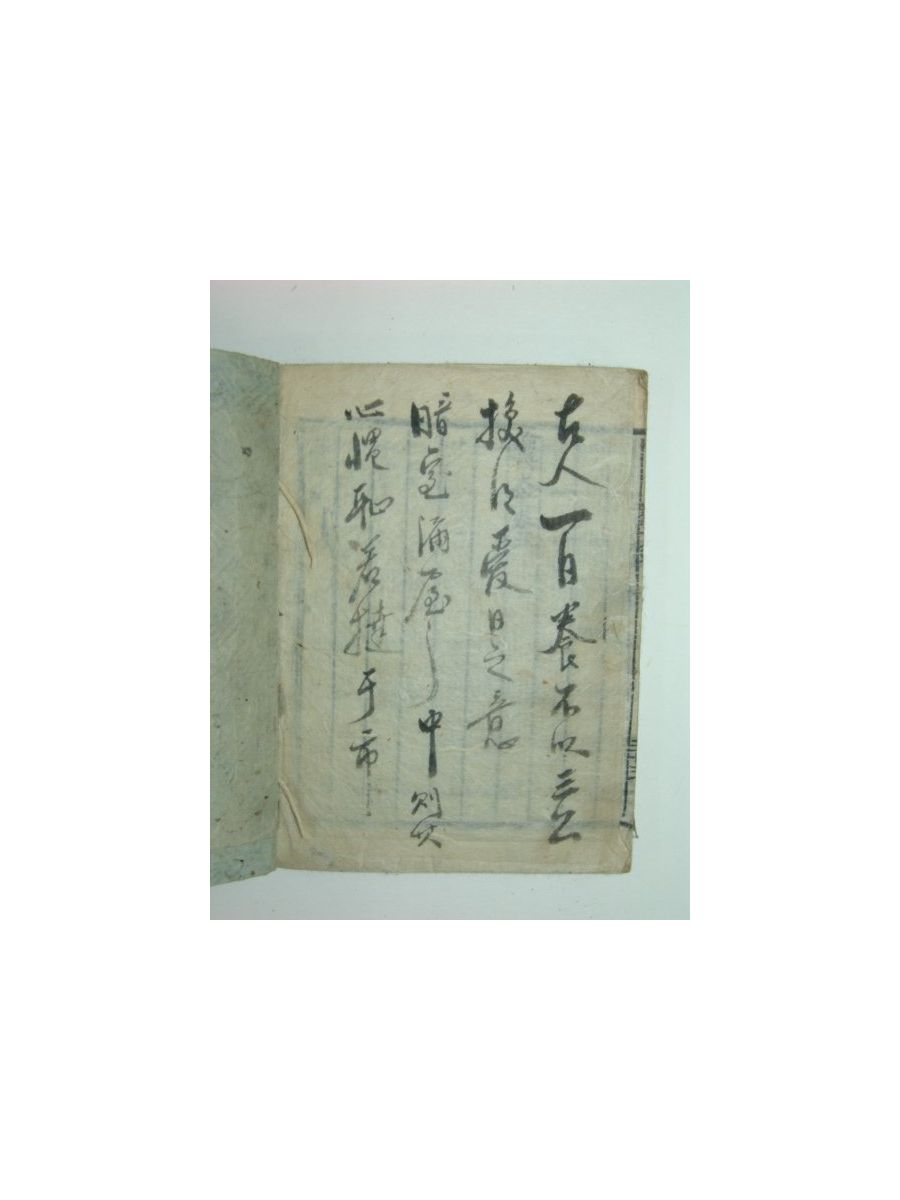 古人一日養不以三公
換得愛日之意
暗室漏屋之中則其
心愧恥若撻于市